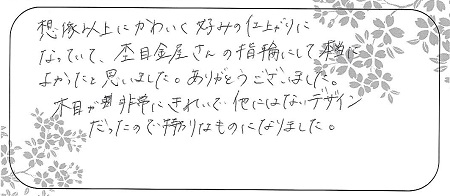 想像以上にかわいく好みの仕上がりに
なっていて、杢目金屋さんの指輪にして本当に
よかったと思いました。ありがとうございました。
木目が非常にきれいで他にはないデザイン
だったので特別なものになりました。